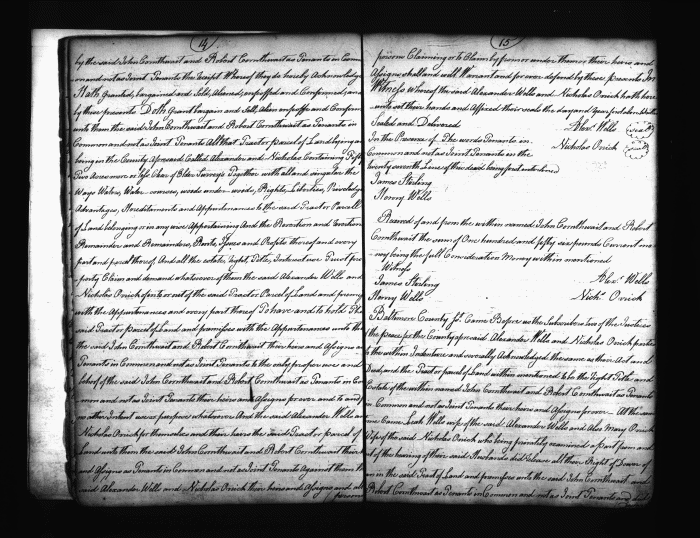 14
by the said John Cornthwait and Robert Cornthwait as Tenants in Comm
on and not as Joint Tenants the Receipt Whereof they do hereby Acknowledge
Hath Granted, bargained and Sold, Aliened, enfeoffed and Confirmed, and
by these presents Doth Grant bargain and Sell, Alien enfeoff and Confirm
unto them the said John Cornthwait and Robert Cornthwait as Tenants in
Common and not as Joint Tenants All that Tract or parcel of Land lying and
being in the County Aforesaid Called Alexander and Nicholas Containing Fifty
Two Acres more or less Clear of Elder Surveys Together with all and singular the
Ways Waters, Water courses, woods under woods, Rights, Liberties, Priviledges
Advantages, Hereditaments and Appurtenances to the said Tract or Parcell
of Land belonging or in any wise Appertaining And the Reversion and Reversions
Remainder and Remainders, Rents, Issues and Profits thereof and every
part and parcel thereof And all the estate, right, Title, Interest use Trust pro
perty Claim and demand whatsoever of them the said Alexander Wells and
Nicholas Orrick of in to or out of the said Tract or Parcel of Land and premises
with the Appurtenances and every part thereof To have and to hold The
said Tract or parcel of Land and premises with the Appurtenances unto them
the said John Cornthwait and Robert Cornthwait their heirs and Assigns as
Tenants in Common and not as Joint Tenants to the only proper use and
behoof of the said John Cornthwait and Robert Cornthwait as Tenants in Co
mmon and not as Joint Tenants their heirs and Assigns for ever and to and for
no other Intent use or purpose whatever And the said Alexander Wells and
Nicholas Orrick for themselves and their heirs the said Tract or parcel of
Land unto them the said John Cornthwait and Robert Cornthwait their heirs
and Assigns as Tenants in Common and not as Joint Tenants Against them the
said Alexander Wells and Nicholas Orrick their heirs and Assigns and all
persons
15
persons Claiming or to Claim by from or under them or their heirs and
Assigns shall and will Warrant and forever defend by these presents In
Witness Whereof the said Alexander Wells and Nicholas Orrick hath here
unto set their hands and Affixed their seals the day and year first above Written
Sealed and Delivered
Alexr Wells (seal)
In the Presence of The words Tenants in
Common and not as Joint Tenants in the
Nicholas Orrick (seal)
twenty seventh Line of this deed being first interlined
James Sterling
Henry Wells
Received of and from the within named John Cornthwait and Robert
Cornthwait the sum of One hundred and fifty six pounds Current mo
ney being the full Consideration Money within mentioned
Witness
James Sterling
Alexr Wells
Henry Wells
Nichs Orrick
Baltimore County sst Came Before us the Subscribers two of the Justices
of the peace for the County aforesaid Alexander Wells and Nicholas Orrick parties
to the within Indenture and severally Acknowledged the same as their Act and
Deed, and the Tract or parcel of Land within mentioned to be the Right Title and
Estate of the within named John Cornthwait and Robert Cornthwait as Tenants
in Common and not as Joint Tenants their heirs and Assigns forever - At the same
time Came Leah Wells wife of the said Alexander Wells and Also Mary Orrick
Wife of the said Nicholas Orrick who being privately examined apart from and
out of the hearing of their said Husbands did release all their Right of Dower of
in the said Tract of Land and premises unto the said John Cornthwait and
Robert Cornthwait as Tenants in Common and not as Joint Tenants and